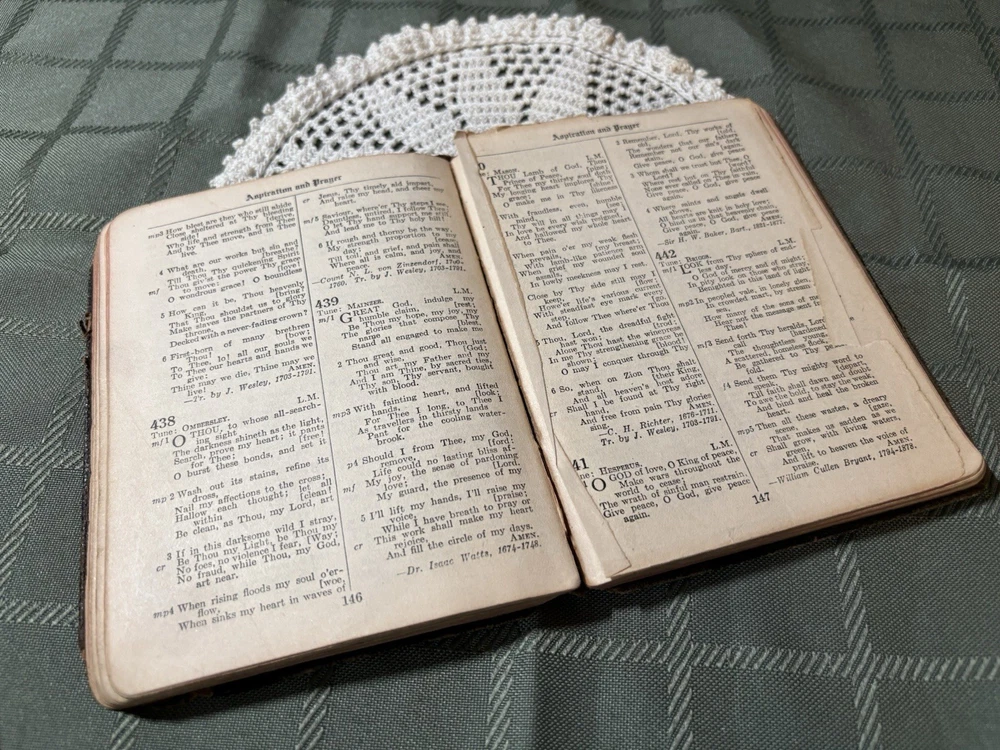 Aspiration and Prayer
mp3 How blest are they who still abide
Close sheltered at Thy bleeding
side! [derive,
Who life and strength from Thee
And by Thee move, and in Thee
live.
4 What are our works but sin and
death,
Till Thou Thy quickening Spirit
mf Thou giv'st the power Thy grace
to move:
O wondrous grace! O boundless
5 How can it be, Thou heavenly
King, [bring?
That Thou shouldst us to glory
Make slaves the partners of Thy
Decked with a never-fading crown?
6 First-born of many brethren
Thou! [bow:
To Thee, lo! all our souls we
To Thee our hearts and hands we
give:
Thine may we die, Thine may we
live!
—Tr. by J. Wesley, 1703-1791.
438
L.M.
Tune: OMBERSLEY.
mf1 O THOU, to whose all-search-
ing sight
The darkness shineth as the light,
Search, prove my heart; it pants
for Thee; [free!
O burst these bonds, and set it
mp 2 Wash out its stains, refine its
dross,
Nail my affections to the cross;
Hallow each thought; let all
within [clean!
Be clean, as Thou, my Lord, art
3 If in this darksome wild I stray,
cr Be Thou my Light, be Thou my
Way; [Way;
No foes, no violence I fear,
No fraud, while Thou, my God,
art near.
mp4 When rising floods my soul o'er-
flow, [woe,
When sinks my heart in waves of
cr Jesus, Thy timely aid impart,
And raise my head, and cheer my
heart.
mf5 Saviour, where'er Thy steps I see,
Dauntless, untired, I follow Thee:
O let Thy hand support me still,
And lead me to Thy holy hill!
6 If rough and thorny be the way,
My strength proportion to my
day; [cease,
Till toil, and grief, and pain shall
Where all is calm, and joy, and
peace. AMEN.
—Count N. L. von Zinzendorf, 1700-
1760. Tr. by J. Wesley, 1703-1791.
439
L.M.
Tune: MAINZER.
mf1 GREAT God, indulge my
humble claim, [rest;
Be Thou my hope, my joy, my
The glories that compose Thy
Stand all engaged to make me
blest.
2 Thou great and good, Thou just
and wise, [God;
Thou art my Father and my
And I am Thine, by sacred ties,
Thy son, Thy servant, bought
with blood.
mp3 With fainting heart, and lifted
hands, [look;
For Thee I long, to Thee I
As travellers in thirsty lands
Pant for the cooling water-
brook.
p4 Should I from Thee, my God,
remove, [ford;
Life could no lasting bliss af-
mf My joy, the sense of pardoning
love; [Lord.
My guard, the presence of my
5 I'll lift my hands, I'll raise my
voice, [praise;
While I have breath to pray or
cr This work shall make my heart
rejoice,
And fill the circle of my days.
AMEN.
—Dr. Isaac Watts, 1674-1748.
146
Aspiration and Prayer
L.M.
MASON.
THOU Lamb of God, Thou
Prince of Peace,
For Thee my thirsty soul doth
My longing heart implores Thy
grace;
O make me in Thy
With fraudless, even, humble
mind,
Thy will in all things may I
In love be every wish resigned,
And hallowed my whole heart
to Thee.
When pain o'er my weak flesh
prevails, [my breast;
With lamb-like patience arm
When grief my wounded soul
assails,
In lowly meekness may I rest.
Close by Thy side still may I
However life's various current
With steadfast eye mark every
step,
And follow Thee where'er Thou
go.
5 Thou, Lord, the dreadful fight
hast won; [trod:
Alone Thou hast the winepress
In me Thy strengthening grace be
O may I conquer through Thy
blood!
6 So, when on Zion Thou shalt
stand, [their King,
cr And all heaven's host adore
Shall I be found at Thy right
hand,
And free from pain Thy glories
sing. AMEN.
—C. H. Richter, 1676-1711.
Tr. by J. Wesley, 1703-1791.
41
L.M.
HESPERUS.
O GOD of love, O King of peace,
Make wars throughout the
world to cease;
The wrath of sinful man restrain:
Give peace, O God, give peace
again.
2 Remember, Lord, Thy works of
old,
The wonders that our fathers
Remember not our sin's dark
stain:
Give peace, O God, give peace
3 Whom shall we trust but Thee, O
Lord?
Where rest but on Thy faithful
None ever called on Thee in vain,
Give peace, O God, give peace
again.
4 Where saints and angels dwell
above,
All hearts are knit in holy love;
O bind us in that heavenly chain,
Give peace, O God, give peace
AMEN.
—Sir H. W. Baker, Bart., 1821-1877.
442
L.M.
BRUCE.
LOOK from Thy sphere of end-
less day,
O God of mercy and of might;
In pity look on those who stray,
Benighted in this land of light.
mp2 In peopled vale, in lonely glen,
In crowded mart, by stream
How many of the sons of me
Hear not the message sent f
Thee!
mf3 Send forth Thy heralds, Lord
The thoughtless young,
A scattered, homeless flock,
Be gathered to Thy pe
f4 Send them Thy mighty word to
speak,
Till faith shall dawn and doubt
To awe the bold, to stay the weak,
And bind and heal the broken
heart.
mp5 Then all these wastes, a dreary
scene, [gaze,
That makes us sadden as we
cr Shall grow, with living waters
green,
And lift to heaven the voice of
praise. AMEN.
—William Cullen Bryant, 1794-1878.
147